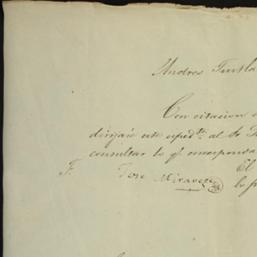 Andres Tuxtla
Con citacion
dirijase este espedte. al Sr
consultar lo qe. corresponda
El
F. Jose Miravete
lo f